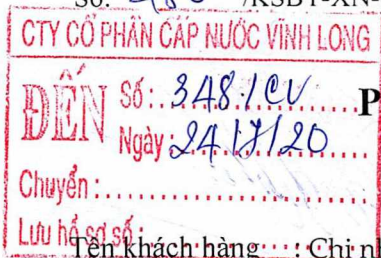 Số: /KSBT-XN-
CTY CỔ PHẦN CẤP NƯỚC VĨNH LONG
ĐẾN
Số: 348/CV P
Ngày: 24/7/20
Chuyển:
Lưu hồ sơ số:
Tên khách hàng : Chi n